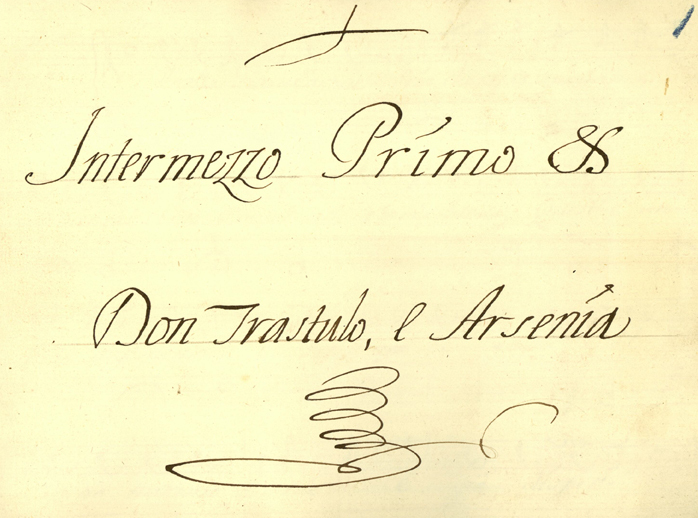 1
Intermezzo Primo &
Don Trastulo, e Arsenia